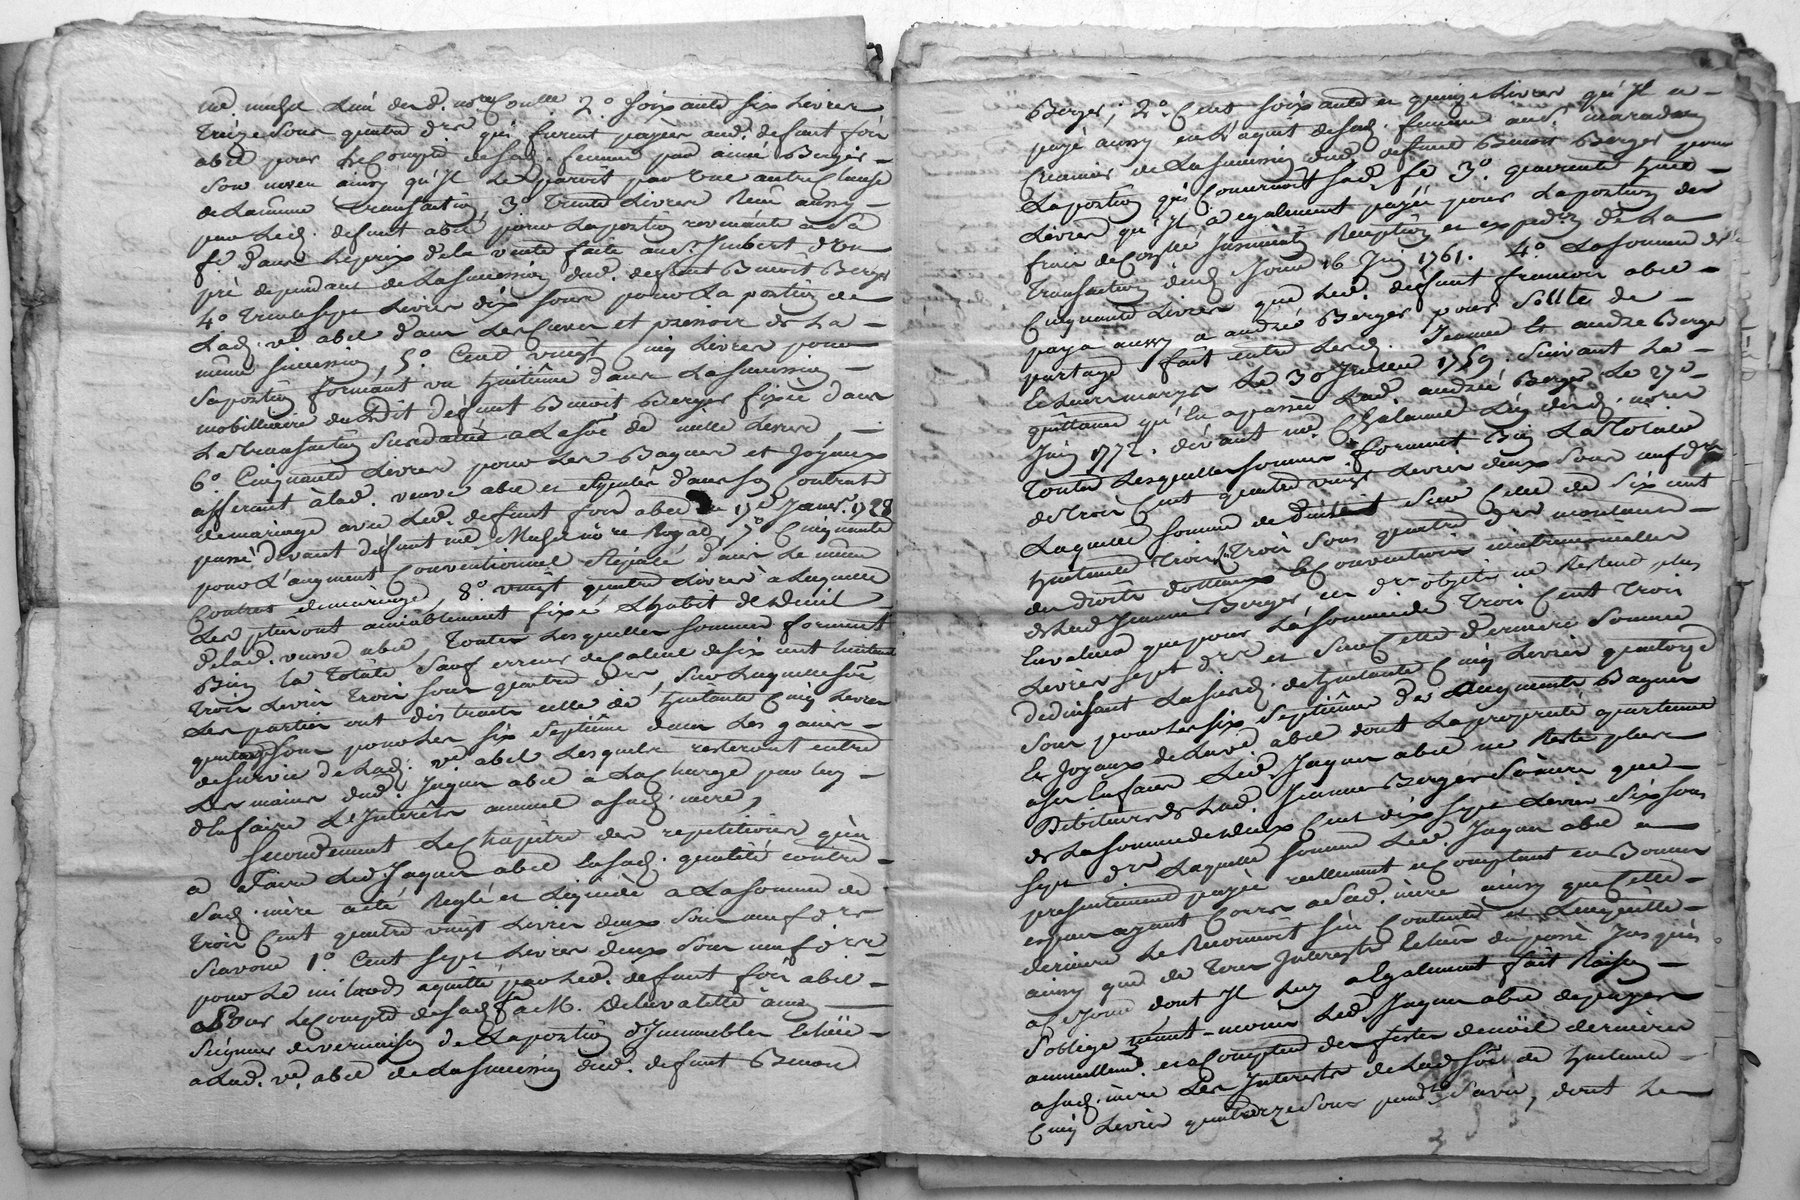 2.° soixante six Livres
treize sous quatre d.rs qui furent payées aud. defunt foin
abel pour le Compte de sad. femme par aimé Berger
son neveu ainsy qu'il paroit par une autre Clause
de La même transaction, 3.° trente Livres Reçu aussy
par Led. defunt abel pour La portion revenante à sa
fe. dans Le prix de la vente faite au Sr. Imbert d'un
pré dependant de La succession dud. defunt Benoit Berger
4.° trente sept Livres dix sous pour La portion de
Lad. ve. abel dans Les Cuves et pressoir de La
même succession 5.° Cent vingt Cinq Livres pour
sa portion formant un huitième dans La succession
mobilliaire dudit defunt Benoit Berger fixée dans
La transaction susdatée a La sôe de mille Livres,
6.° Cinquante Livres pour Les Bagues et Joyaux
afferant à Lad. veuve abel et stipulés dans son Contrat
de mariage avec Led. defunt foin abel du 17.e Janv.r 1728
passé devant défunt me. Michel nore Royal, 7.° Cinquante
pour L'augment Conventionnel stipulé dans Le même
Contrat de mariage, 8.° vingt quatre Livres à Laquelle
Les parties ont amiablement fixé L'habit de deuil
de Lad. veuve abel, toutes Lesquelles sommes forment
Bien La totale sauf erreur de Calcul de six cent huitante
trois Livres trois sous quatre d.rs, sur Laquelle sôe
Les parties ont distrait celle de huitante Cinq Livres
quatorze sous pour Les six septième dans Les gains
de survie de Lad. ve. abel Lesquels resteront entre
Les mains dud. Jaques abel à La Charge par luy
d'en faire L'Interêts annuel a sad. mère,
Secondement Le Chapitre des repetitions qu'en
a a faire Led. Jaques abel en sad. qualité contre
sad. mère a été Reglé et Liquidé a La somme de
trois Cent quatre vingt Livres deux sous neuf d.rs
Scavoir 1.° Cent sept Livres deux sous neuf d.rs
pour Le mi lods aquitté par Led. defunt foin abel
Pour Le Compte de sad. fe. a M. De Lavalette ancien
Seigneur de vernaison de La portion d'Immeubles Echüe
a Lad. ve. abel de La succession dud. defunt Benoit
Berger, 2.° Cent soixante et quinze Livres qu'il a
payé aussy en L'aquit de sad. femme aud.
Creancier de La succession dud. defunt Benoit Berger pour
La portion qui Concernoit sad. fe. 3.° quarante huit
Livres qu'il a egalement payée pour La portion des
frais de Reception et exped.on de La
transaction dud. Jour 16 Juin 1761. 4.° La somme de
Cinquante Livres que Led. defunt francois abel
paya aussy a andré Berger pour soulte de
partage fait entre Lesd. Jeanne et andré Berger
et Leurs maryes Le 30 Janvier 1759. suivant La
quittance qu'en a passée Lad. andrée Berger Le 27.e
Juin 1772. devant me. Chalamel L'un desd. nores
toutes Lesquelles sommes forment Bien La totale
de trois Cent quatre vingt Livres deux sous neuf d.rs
Laquelle somme deduite sur Celle de six cent
huitante trois L. trois sous quatre d.rs montant
des droits dotaux et Conventions matrimoniales
de Lad. Jeanne Berger en d.rs objets ne Restent plus
en valeur que pour La somme de trois Cent trois
Livres sept d.rs et sur Cette derniere somme
deduisant La susd. de huitante Cinq Livres quatorze
sous pour Les six septième des augments Bagues
et Joyaux de La ve. abel dont La proprieté apartenant
a ses Enfans Led. Jaques abel ne Reste plus
Debiteur de Lad. Jeanne Berger sa mere que
de La somme de deux Cent dix sept Livres six sous
sept d.rs Laquelle somme Led. Jaques abel a
presentement payée reellement et Comptant en Bonnes
espèces ayant Cours a sad. mère ainsy que Celle
derniere Le Reconnoit s'en Contente et L'en quitte
ainsy que de tous Interets Echus du passé Jusques
a Ce Jour dont Il luy a Egalement fait Raison
s'oblige neant-moins Led. Jaques abel de payer
annuellem.t et a Compter des festes de noël dernieres
a sad. mere Les Interets de Lad. sôe de huitante
Cinq Livres quatorze sous pend.t sa vie, dont Les